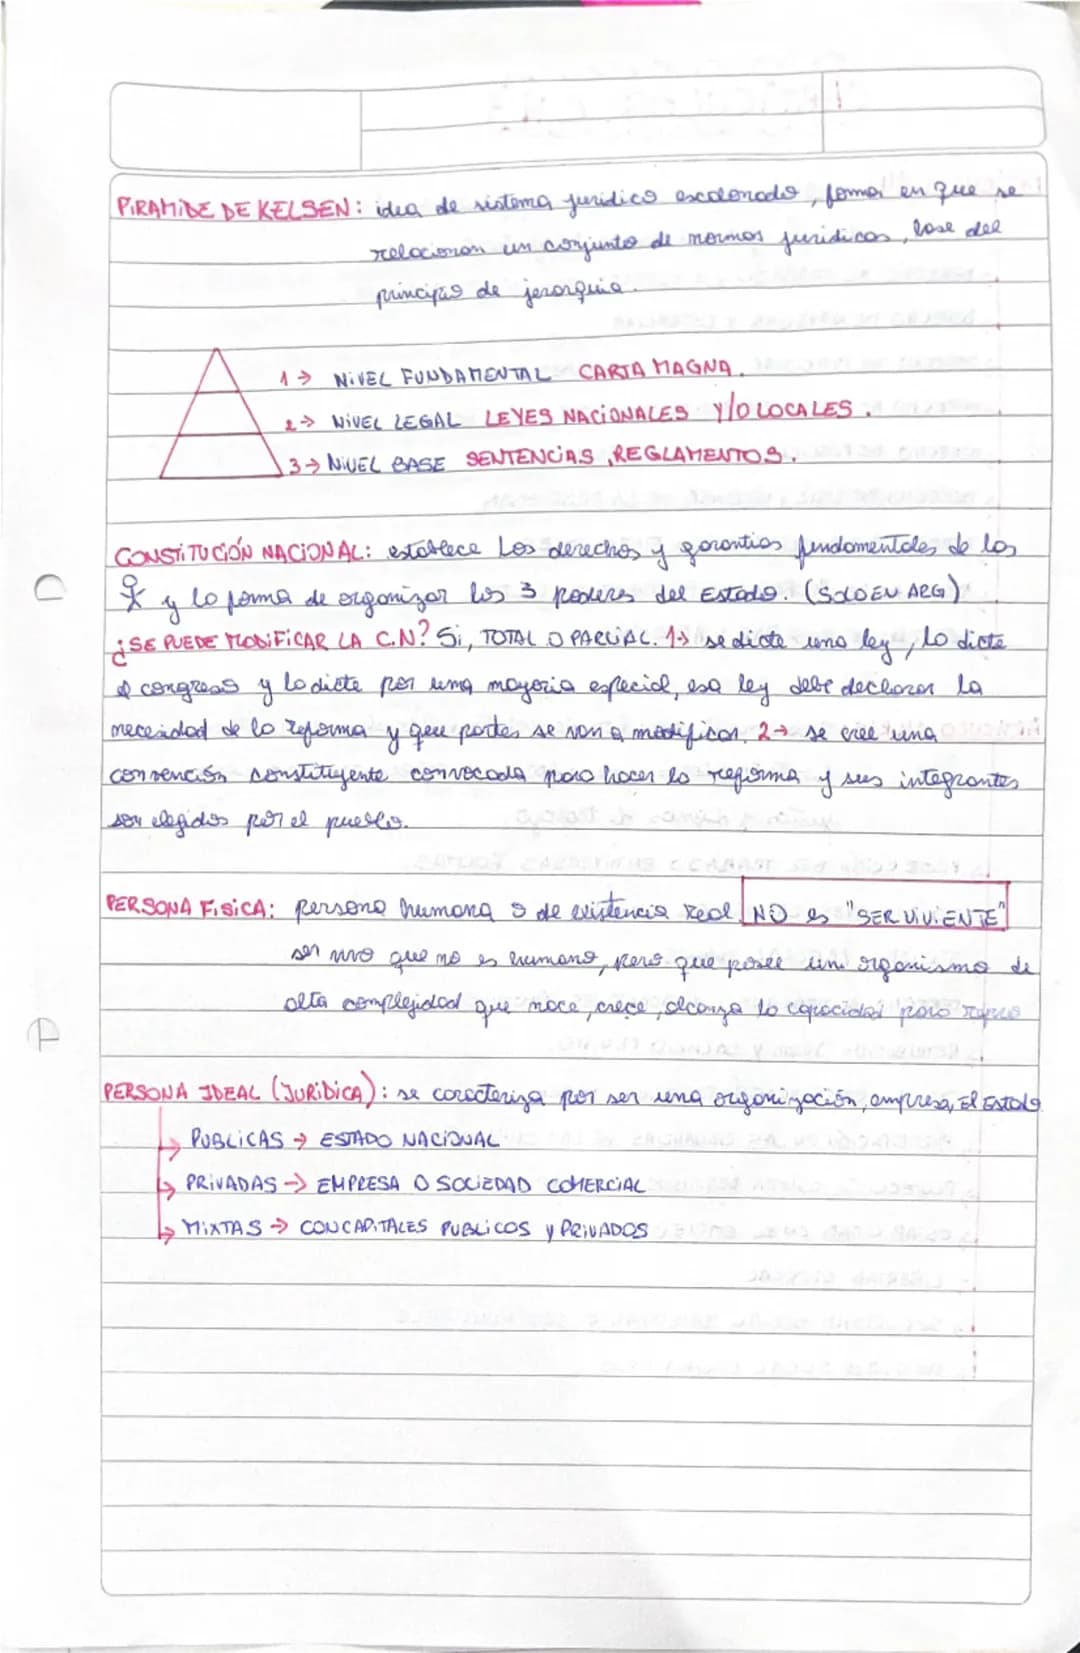 PIRAMIDE DE KELSEN: idea de sistema juridico escalonado, forma en que se
relacionan un conjunto de normas juridicas, base del
principio de jerarquia.
1→ NIVEL FUNDAMENTAL CARTA MAGNA.
2→ NIVEL LEGAL LEYES NACIONALES Y/O LOCALES.
3→ NIVEL BASE SENTENCIAS, REGLAMENTOS.
CONSTITUCIÓN NACIONAL: establece Los derechos y garantias fundamentales de los
y la forma de organizar los 3 poderes del Estado. (SOLO EN ARG)
¿SE PUEDE MODIFICAR LA C.N? Si, TOTAL O PARCIAL. 1→ se dicta una ley, lo dicta
el congreso y lo dicta por una mayoria especial, esa ley debe declarar la
necesidad de la reforma y que partes se van a modificar. 2→ se cree una
convención constituyente convocada para hacer la reforma y sus integrantes
son elegidos por el pueblo.
PERSONA FISICA: persona humana o de existencia real. NO es "SER VIVIENTE"
ser vivo que no es humano, pero que posee un organismo de
alta complejidad que nace, crece, alcanza la capacidad para
PERSONA IDEAL (JURIDICA): se caracteriza por ser una organización, empresa, El Estado
PUBLICAS → ESTADO NACIONAL
PRIVADAS → EMPRESA O SOCIEDAD COMERCIAL
MIXTAS → CON CAPITALES PUBLICOS y PRIVADOS